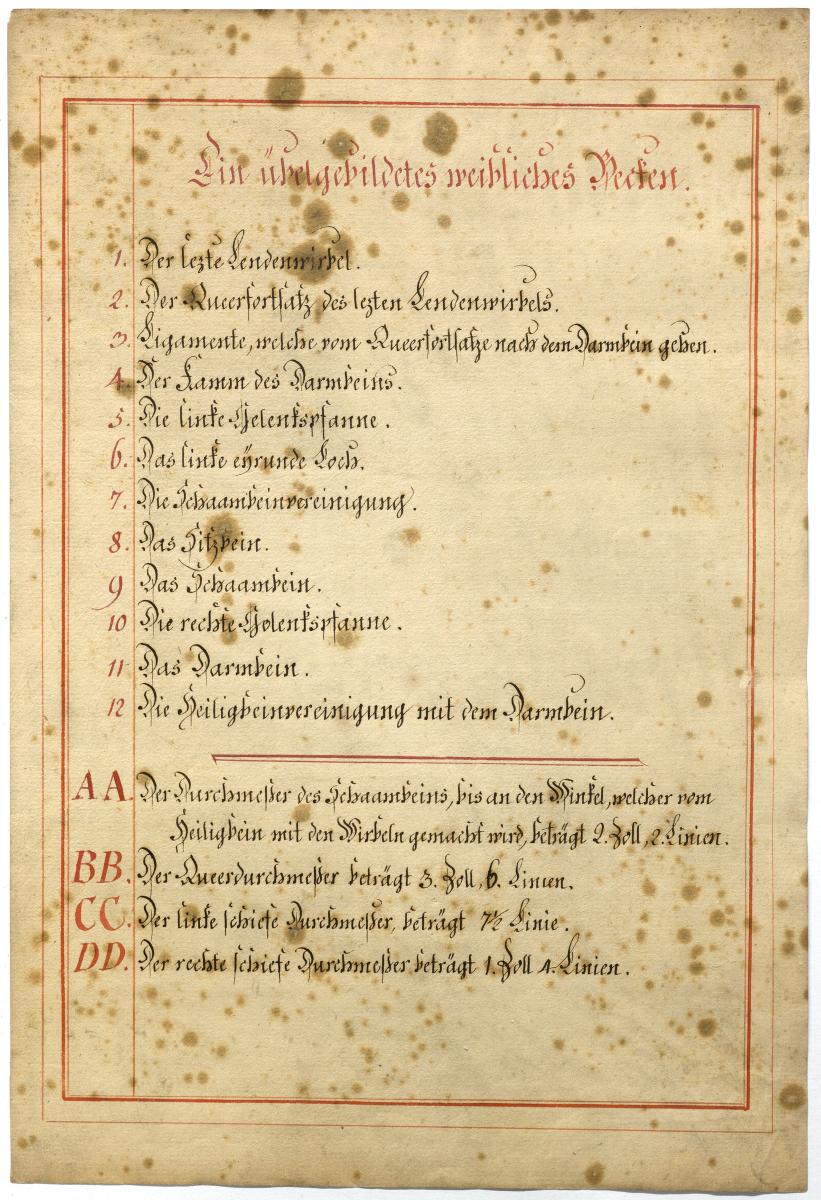 Ein übelgebildetes weibliches Becken.
1. Der lezte Lendenwirbel.
2. Der Queerfortsatz des lezten Lendenwirbels.
3. Ligamente, welche vom Queerfortsatze nach dem Darmbein gehen.
4. Der Kamm des Darmbeins.
5. Die linke Gelenkspfanne.
6. Das linke eÿrunde Loch.
7. Die Schaambeinvereinigung.
8. Das Sitzbein.
9 Das Schaambein.
10 Die rechte Gelenkspfanne.
11 Das Darmbein.
12 Die Heiligbeinvereinigung mit dem Darmbein.
AA. Der Durchmeßer des Schaambeins, bis an den Winkel, welcher vom
Heiligbein mit den Wirbeln gemacht wird, beträgt 2. Zoll, 2. Linien.
BB. Der Queerdurchmeßer beträgt 3. Zoll, 6. Linien.
CC. Der linke schiefe Durchmeßer, beträgt 7½ Linie.
DD. Der rechte schiefe Durchmeßer beträgt 1. Zoll 4. Linien.